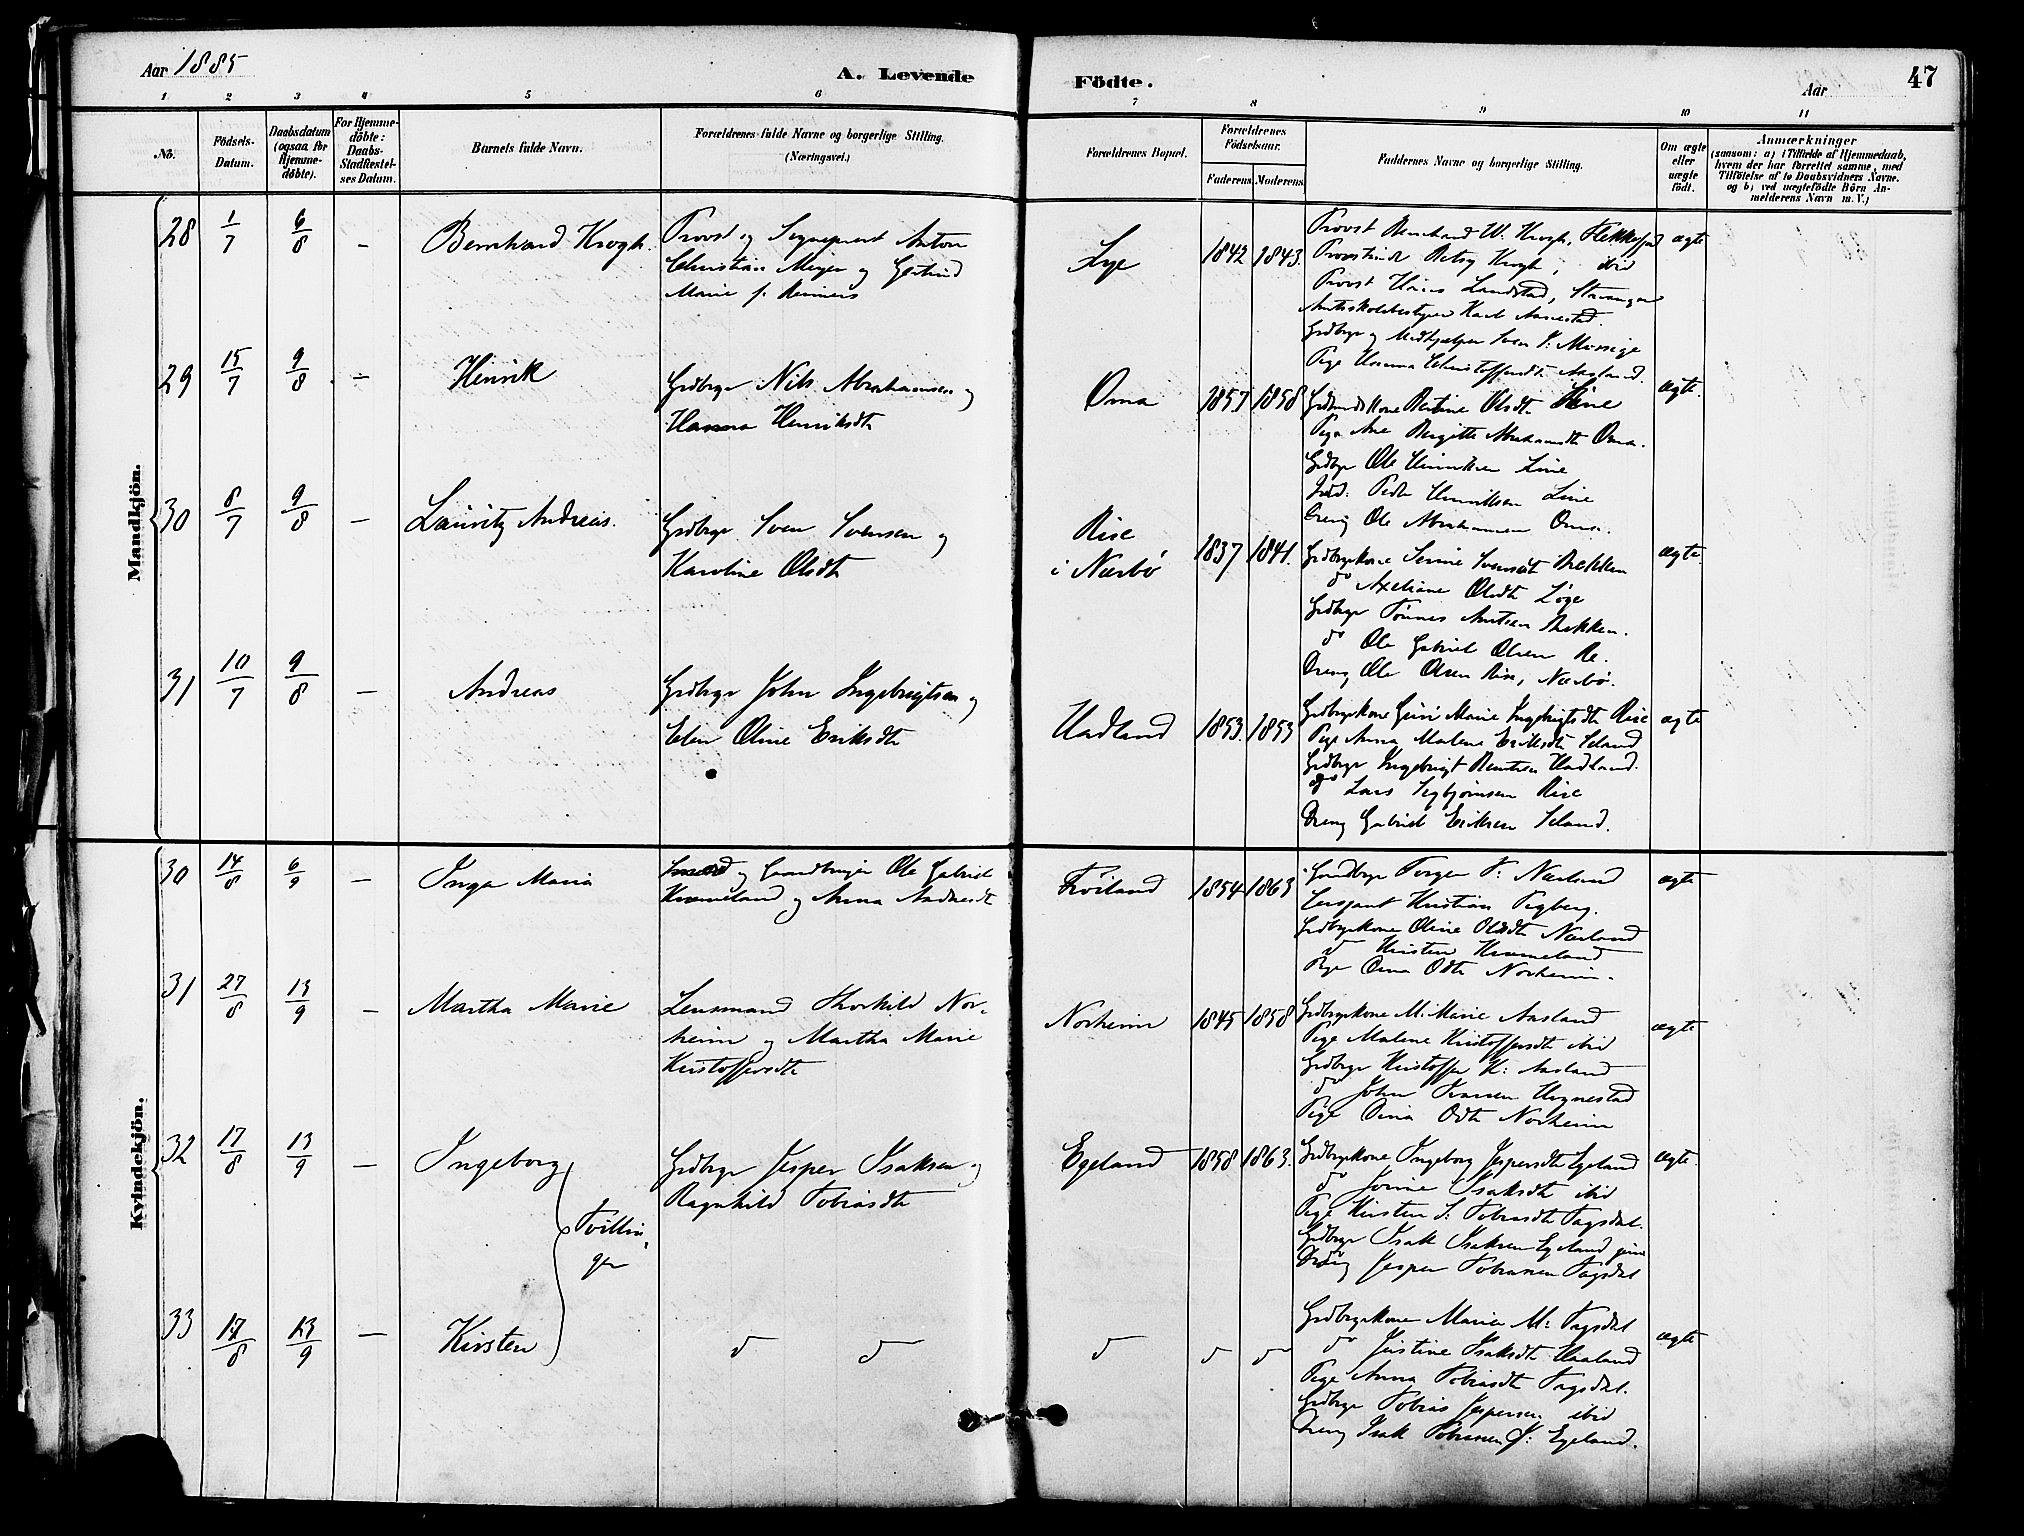 Aar 1885
A. Levende
Födte.
Aar
47
1 2 3 4 5 6 7 8 9 10 11
No.
Födsels-
Datum.
Daabsdatum
(ogsaa for
Hjemme-
döbte).
For Hjemme-
döbte:
Daabs-
Stadfæstel-
ses Datum.
Barnets fulde Navn.
Forældrenes fulde Navne og borgerlige Stilling.
(Næringsvei.)
Forældrenes Bopæl.
Forældrenes
Födselsaar.
Faderens
Moderens
Faddernes Navne og borgerlige Stilling.
Om ægte
eller
uægte
födt.
Anmærkninger
(saasom: a) i Tilfælde af Hjemmedaab,
hvem der har forrettet samme, med
Tilföielse af to Daabsvidners Navne.
og b) ved uægtefödte Börn An-
melderens Navn m. V.)
Mandkjön.
28 1/7 6/8 – Bernhard Krogh.
Provst og Sognepræst Anton
Christian Meyer og Gertrud
Marie f. Reimers
Lye
1842 1843.
Provst Bernhard W. Krogh, Flekkefjord
Provstinde Betsy Krogh, ibid
Provst Landstad, Stavanger
Amtsskolebestyrer Karl Aarrestad.
Grdbrgr og Medhjælper Sven
Pige Christoffersdtr Aasland.
ægte
29 15/7 9/8 – Hinrik
Grdbrgr Nils Abrahamsen og
Hanna Henriksdtr
Oma
1857 1858
Bertine Olsdtr Line
Pige Ane Birgitte Abrahamsdtr Oma.
Grdbrgr Ole Hinriksen Line
Peder Hinriksen Line
Dreng Ole Abrahamsen Oma.
ægte.
30 8/7 9/8 – Lauritz Andreas.
Grdbrgr Sven Svensen og
Karoline Olsdtr
Rise
i Nærbø
1837 1841.
Grdbrgrkone Serine Svensdtr Brekken
do Axeliane Olsdtr Løge
Grdbrgr Tønnes Brekken.
do Ole Gabriel Olsen Re.
Dreng Ole Olsen Rise, Nærbø.
ægte.
31 10/7 9/8 – Andreas
Grdbrgr John Ingebrigtsen og
Elen Oline Eriksdtr
Hadland
1853. 1853
Grdbrgrkone Marie Ingebrigtsdtr Rise
Pige Anna Malene Eriksdtr Seland
Grdbrgr Ingebrigt Hadland.
do Lars Rise
Dreng Gabriel Eriksen Seland.
ægte
Kvindekjön.
30 14/8 6/9 – Inga Maria
og Gaardbruger Ole Gabriel
og Anna
Frøiland
1854 1863
Gaardbrgr Torger T: Nærland
Sersjant Kristian Tegberg.
Grdbrgrkone Oline Olsdtr Nærland
do Kirsten
Pige Norheim.
ægte
31 27/8 13/9 – Martha Marie
Lensmand Thorkild Nor-
heim og Martha Marie
Kristoffersdtr
Norheim
1845 1858
Grdbrgrkone M. Marie Aasland
Pige Malene Kristoffersdtr ibid
Grdbrgr Kristoffer K: Aasland
do John Iversen Hognestad
Pige Norheim
ægte
32 17/8 13/9 – Ingeborg
Grdbrgr Jesper Isaksen og
Ragnhild Tobiasdtr
Egeland
1858 1863.
Grdbrgrkone Ingeborg Jespersdtr Egeland
do Isaksdtr ibid
Pige Kirsten S: Tobiasdtr Tagsdal.
Grdbrgr Isak Isaksen Egeland
Dreng Jesper Tobiassen Tagsdal
ægte.
Tvillin-
ger
33 17/8 13/9 – Kirsten
do do
do
do do
Grdbrgrkone Maria M: Tagsdal
do Justine Isaksdtr Haaland
Pige Anna Tobiasdtr Tagsdal.
Grdbrgr Tobias Jespersen ibid
Dreng Isak Egeland.
ægte